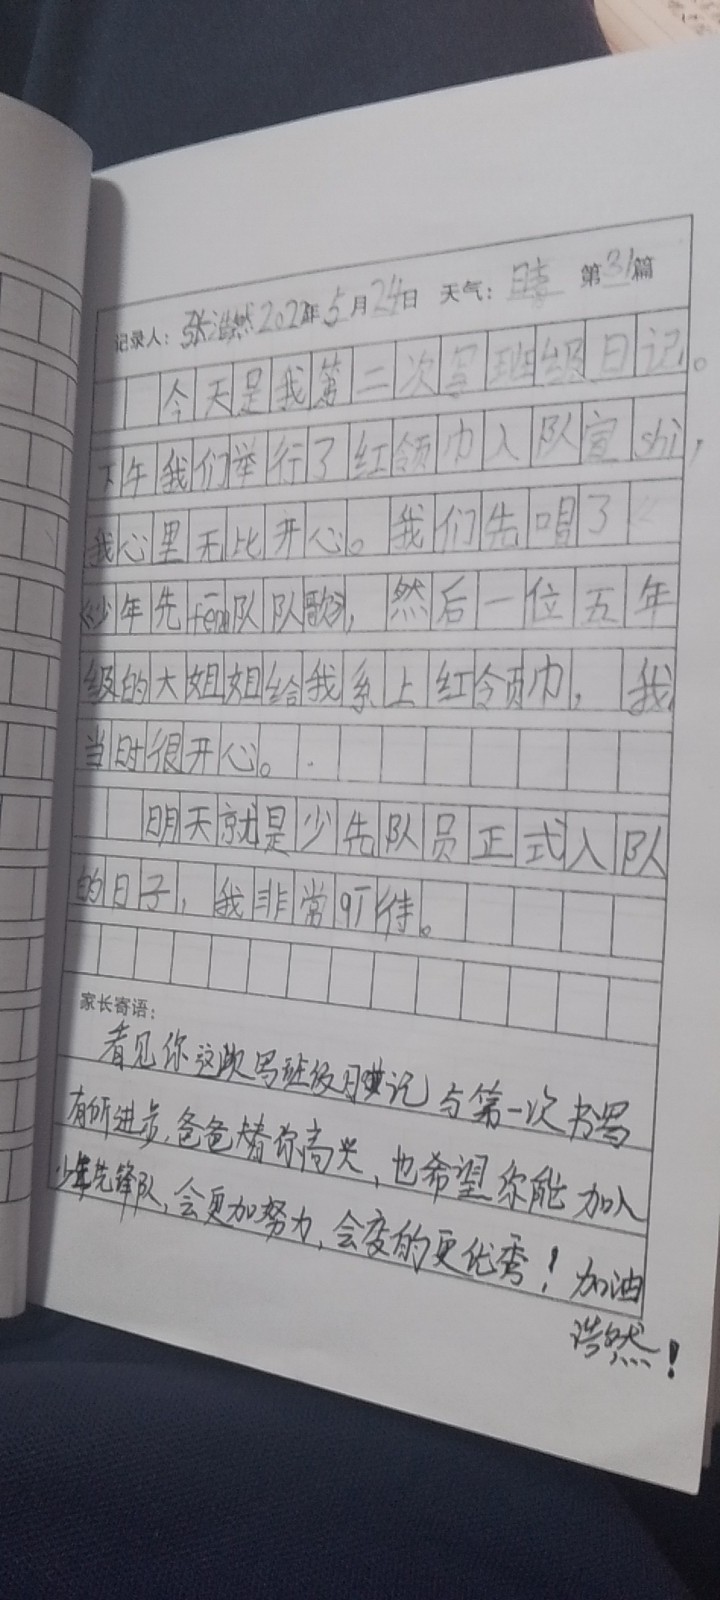 记录人：张浩然 2022年 5月 24日 天气：晴 第31篇
今天是我第二次写班级日记。
下午我们举行了红领巾入队宣shì，
我心里无比开心。我们先唱了
《少年先fēng队队歌》，然后一位五年
级的大姐姐给我系上红领巾，我
当时很开心。
明天就是少先队员正式入队
的日子，我非常期待。
家长寄语：
看见你这次写班级日记与第一次书写
有所进步，爸爸替你高兴，也希望你能加入
少年先锋队，会更加努力，会变的更优秀！加油
浩然！